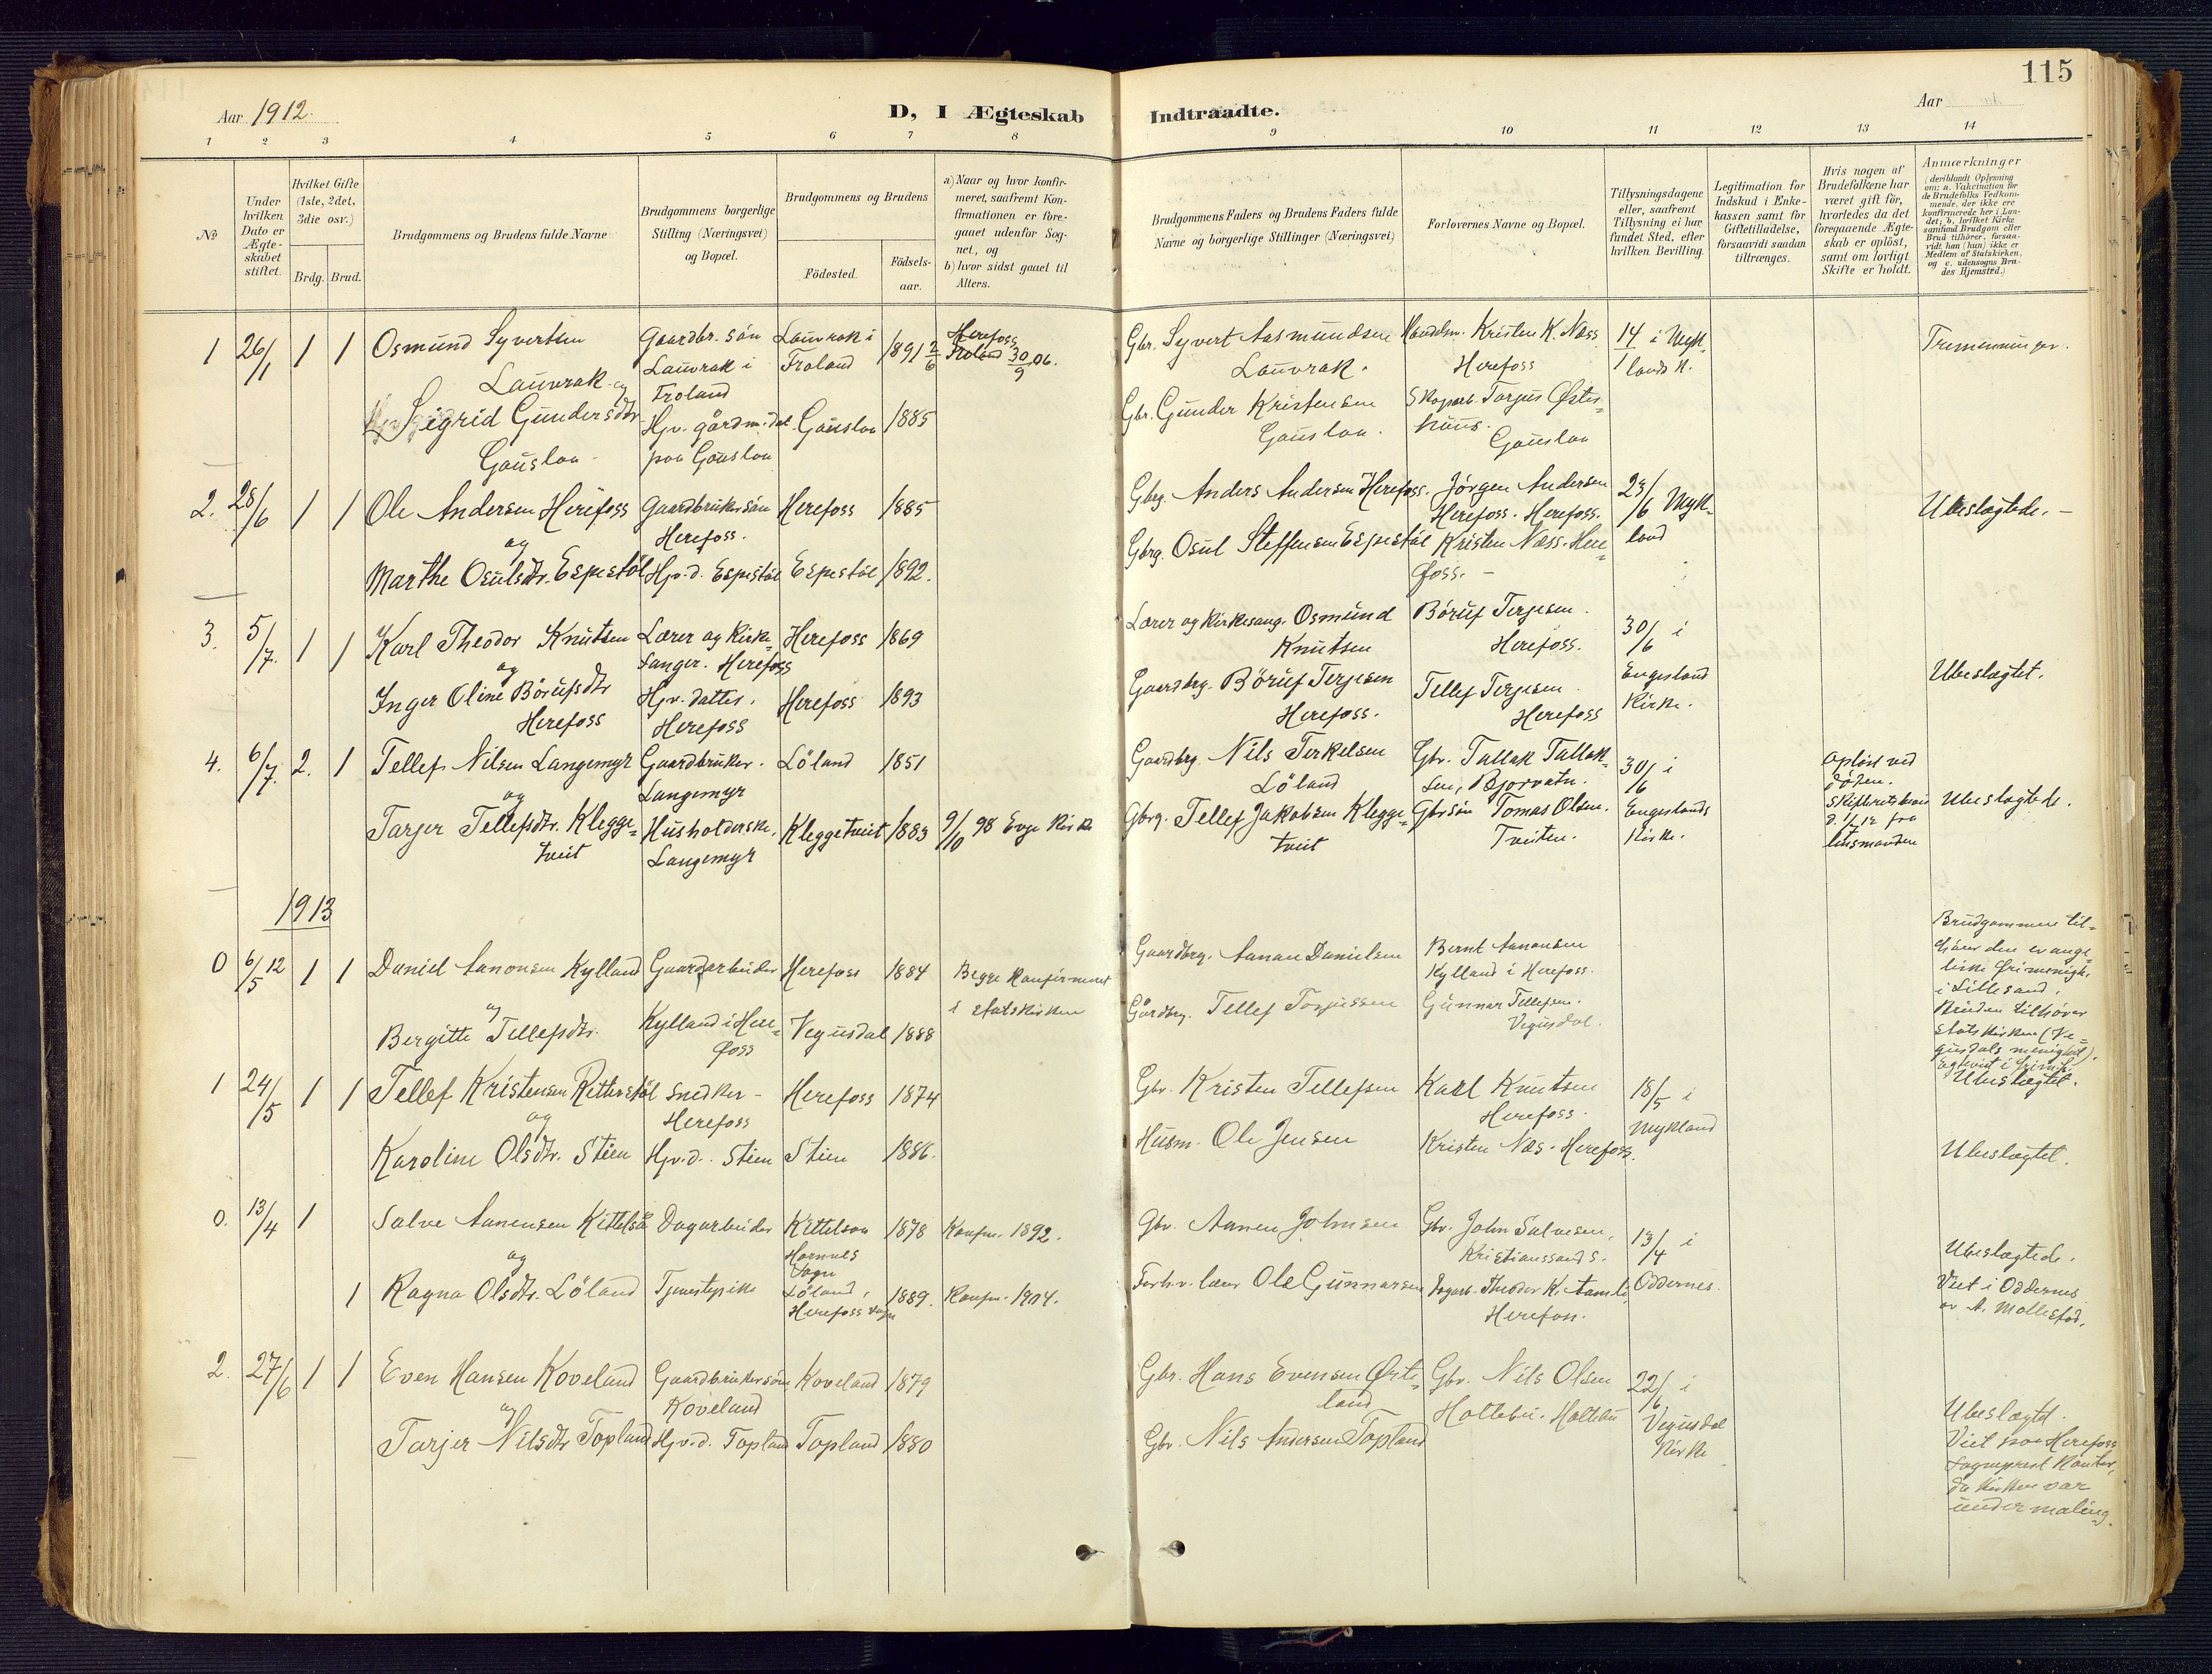 115
Aar 1912.
D, I Ægteskab Indtraadte.
Aar
1 2 3 4 5 6 7 8 9 10 11 12 13 14
No
Under hvilken Dato er Ægteskabet stiftet.
Hvilket Gifte (1ste, 2det, 3die osv.)
Brdg. Brud.
Brudgommens og Brudens fulde Navne
Brudgommens borgerlige Stilling (Næringsvei) og Bopæl.
Brudgommens og Brudens
Födested.
Födselsaar.
a) Naar og hvor konfirmeret, saafremt Konfirmationen er foregaaet udenfor Sognet, og
b) hvor sidst gaaet til Alters.
Brudgommens Faders og Brudens Faders fulde Navne og borgerlige Stillinger (Næringsvei)
Forlovernes Navne og Bopæl.
Tillysningsdagene eller, saafremt Tillysning ei har fundet Sted, efter hvilken Bevilling.
Legitimation for Indskud i Enkekassen samt for Giftetilladelse, forsaavidt saadan tiltrænges.
Hvis nogen af Brudefolkene har været gift för, hvorledes da det foregaaende Ægteskab er oplöst, samt om lovligt Skifte er holdt.
Anmærkninger (deriblandt Oplysning om: a. Vakcination for de Brudefolks Vedkommende, der ikke ere konfirmerede her i Landet; b. hvilket Kirkesamfund Brudgom eller Brud tilhörer, forsaavidt han (hun) ikke er Medlem af Statskirken, og c. udensogns Brudes Hjemsted.)
1 26/1 1 1 Osmund Syvertsen Lauvrak og
Gaardbr. sön Lauvrak i Froland
Lauvrak i Froland 1891 2/6 Herefoss 30/9 06.
Gbr. Syvert Aasmundsen Lauvrak.
Handelsm. Kristen K. Næss Herefoss
14/1 i Myklands K.
Tremenninger.
Sigrid Gundersdtr Gauslaa
Hjv. gårdm. dat paa Gauslaa
Gauslaa 1885
Gbr. Gunder Kristensen Gauslaa.
Skoparb. Torjus Østerhuus. Gauslaa
2. 28/6 1 1 Ole Andersen Herefoss
og
Gaardbrukersön Herefoss.
Herefoss 1885
Gbrg. Anders Andersen Herefoss.
Jörgen Andersen Herefoss. Herefoss.
23/6 Mykland
Ubeslægtede.
Marthe Osulsdtr. Espestöl
Hjv. d. Espestöl Espestöl 1892.
Gbrg. Osul Steffensen Espestöl
Kristen Næss. Herefoss.
3. 5/7. 1 1 Karl Theodor Knutsen
og
Lærer og Kirkesanger. Herefoss
Herefoss 1869
Lærer og Kirkesang. Osmund Knutsen
Böruf Terjesen. Herefoss.
30/6 i Engesland Kirke.
Ubeslægtet.
Inger Oline Börufsdtr Herefoss
Hjv. datter. Herefoss
Herefoss 1893
Gaardbrg. Böruf Terjesen Herefoss.
Tellef Terjesen Herefoss
4. 6/7. 2. 1 Tellef Nilsen Langemyr
og
Gaardbruker. Langemyr
Löland 1851
Gaardbrg Nils Terkelsen Löland
Gbr. Tallak Tallaksen, Bjorvatn.
30/6 i Engeslands Kirke.
oplöst ved döden.
d. 1/7 12 fra lensmanden
Ubeslægtede.
Tarjer Tellefsdtr. Kleggetveit
Husholderske. Langemyr
Kleggetveit 1883 9/10 98 Evje Kirke
Gbrg. Tellef Jakobsen Kleggetveit
Gbrsön Tomas Olsen. Tveiten.
1913
0 6/5 12 1 1 Daniel Aanonsen Kylland
og
Gaardarbeider Kylland i Herefoss
Herefoss 1884
Begge konfirmeret i statskirken
Gaardbrg. Aanon Danielsen
Bernt Aanonsen Kylland i Herefoss.
Brudgommen tilhörer den evangeliske frimenigh. i Lillesand.
Bruden tilhörer statskirken (Vegusdals menighet).
Ubeslægtet.
Bergitte Tellefsdtr.
Vegusdal 1888
Gårdbrg. Tellef Torjussen
Gunnar Tellefsen. Vegusdal.
1 24/5 1 1 Tellef Kristensen Retterstöl
og
Snedker Herefoss
Herefoss 1874
Gbr. Kristen Tellefsen
Karl Knutsen Herefoss.
18/5 i Mykland
Karoline Olsdtr. Stien
Hjv. d. Stien Stien 1886.
Husm. Ole Jensen
Kristen Næs. Herefoss.
Ubeslægtet.
0. 13/4 1 Salve Aanensen Kittelså
og
Dagarbeider
Kittelsaa Hornnes Sogn 1878 Konfm. 1892.
Gbr. Aanen Johnsen
Gbr. John Salvesen, Kristianssand S.
13/4 i Oddernes.
Ubeslægtede.
Viet i Oddernes av A. Mollestad.
1 Ragna Olsdtr. Löland
Tjenestepike
Löland, Herefoss sogn 1889. Konfm. 1904.
Forhv. lærer Ole Gunnarsen
Dagarb. Theodor K. Aamli, Herefoss.
2. 27/6 1 1 Even Hansen Koveland
og
Gaardbrukersön Koveland
Koveland 1879
Gbr. Hans Evensen
Gbr. Nils Olsen Holtebu. Holtebu
22/6 i Vegusdal Kirke
Ubeslægtet.
Viet paa Herefoss Sogneprest Kontor, da kirken var under maling.
Tarjer Nilsdtr Topland
Hjv. d. Topland Topland 1880
Gbr. Nils Andersen Topland